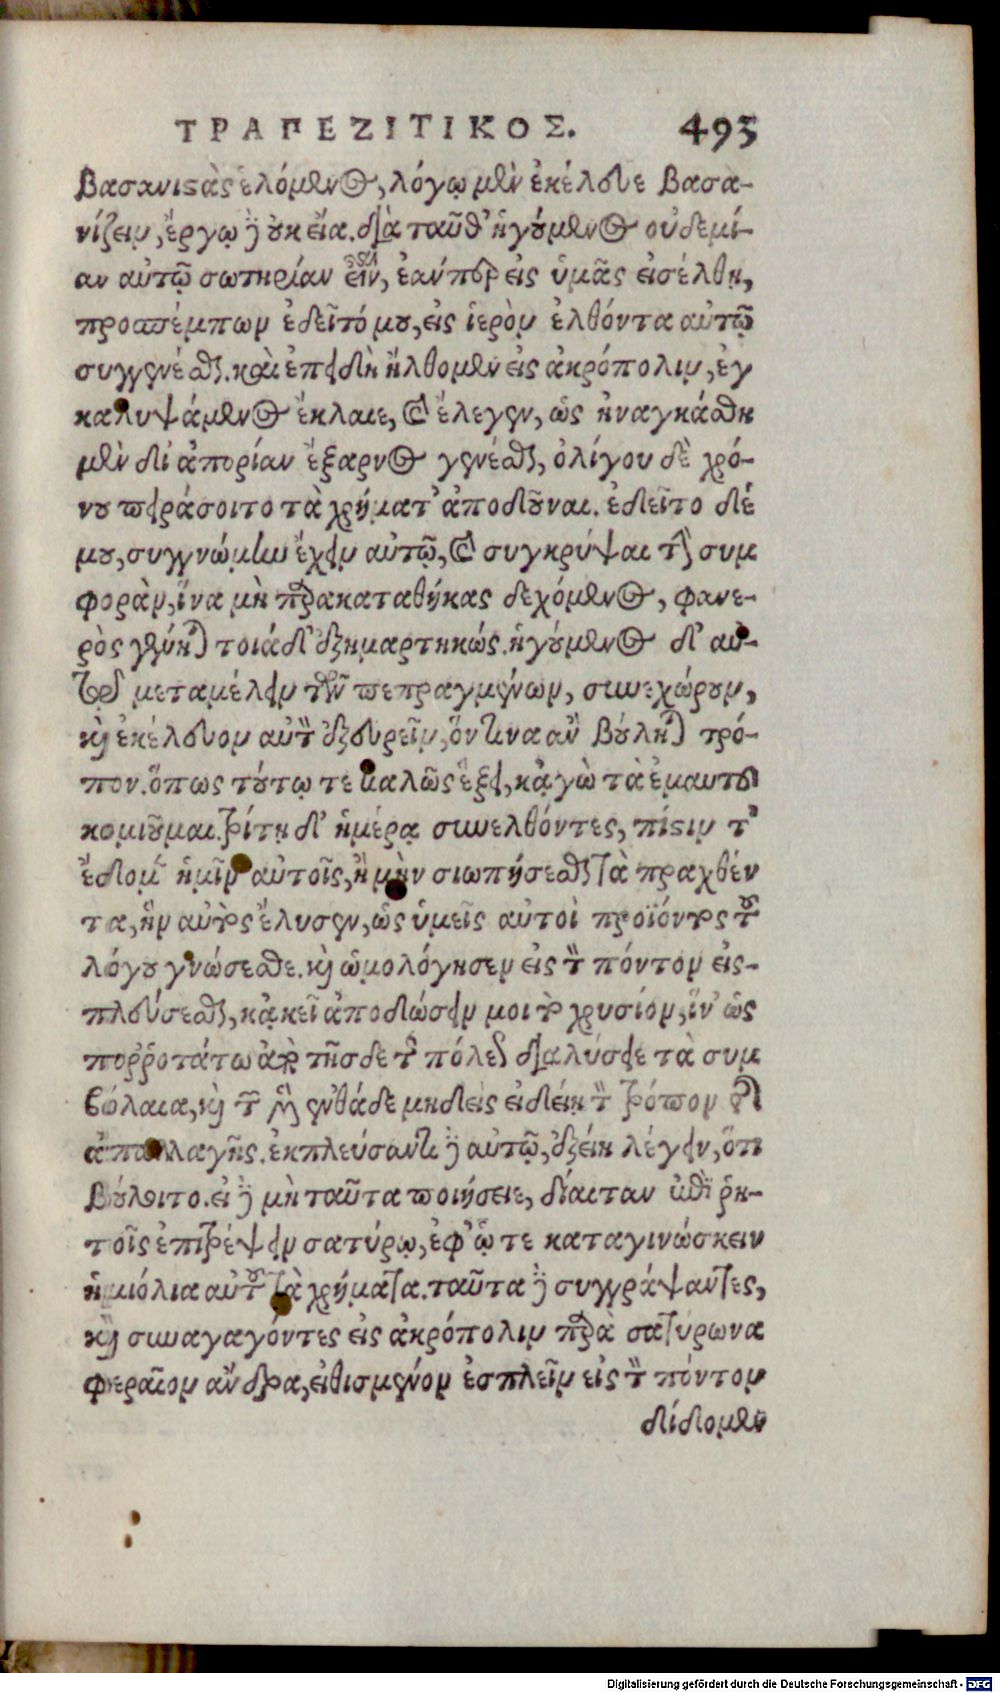 ΤΡΑΠΕΖΙΤΙΚΟΣ. 495
βασανιστὰς ἑλόμενος, λόγῳ μὲν ἐκέλευε βασα-
νίζειν, ἔργῳ δὲ οὐκ εἴα. διὰ ταῦθ' ἡγούμενος οὐδεμί-
αν αὐτῷ σωτηρίαν εἶναι, ἐάνπερ εἰς ὑμᾶς εἰσέλθῃ,
προσπέμπων ἐδεῖτό μου, εἰς ἱερὸν ἐλθόντα αὐτῷ
συγγενέσθαι. καὶ ἐπειδὴ ἤλθομεν εἰς ἀκρόπολιν, ἐγ
καλυψάμενος ἔκλαιε, καὶ ἔλεγεν, ὡς ἠναγκάσθη
μὲν δι' ἀπορίαν ἔξαρνος γενέσθαι, ὀλίγου δὲ χρό-
νου πειράσοιτο τὰ χρήματ' ἀποδοῦναι. ἐδεῖτο δέ
μου, συγγνώμην ἔχειν αὐτῷ, καὶ συγκρύψαι τὴν συμ
φορὰν, ἵνα μὴ παρακαταθήκας δεχόμενος, φανε-
ρὸς γένηται τοιάδ' ἐξημαρτηκώς. ἡγούμενος δ' αὐ-
τῷ μεταμέλειν τῶν πεπραγμένων, συνεχώρουν,
καὶ ἐκέλευον αὐτὸν ἐξευρεῖν, ὅντινα ἂν βούληται τρό-
πον. ὅπως τούτῳ τε καλῶς ἕξει, κᾀγὼ τὰ ἐμαυτοῦ
κομιοῦμαι. τρίτῃ δ' ἡμέρᾳ συνελθόντες, πίστιν τ'
ἔδομεν ἡμῖν αὐτοῖς, ἦ μὴν σιωπήσεσθαι τὰ πραχθέν
τα, ἣν αὐτὸς ἔλυσεν, ὡς ὑμεῖς αὐτοὶ προϊόντος τοῦ
λόγου γνώσεσθε. καὶ ὡμολόγησεν εἰς τὸν πόντον εἰς-
πλεύσεσθαι, κᾀκεῖ ἀποδώσειν μοι τὸ χρυσίον, ἵν' ὡς
πορῤῥοτάτω ἀπὸ τῆσδε τῆς πόλεως διαλύσειε τὰ συμ
βόλαια, καὶ τῶν μὲν ἐνθάδε μηδεὶς εἰδείη τὸν τρόπον τῆς
ἀπαλλαγῆς. ἐκπλεύσαντι δὲ αὐτῷ, ἐξείη λέγειν, ὅτι
βούλοιτο. εἰ δὲ μὴ ταῦτα ποιήσειε, δίαιταν ἐπὶ ῥη-
τοῖς ἐπιτρέψειν σατύρῳ, ἐφ' ᾧ τε καταγινώσκειν
ἡμιόλια αὐτοῦ τὰ χρήματα. ταῦτα δὲ συγγράψαντες,
καὶ συναγαγόντες εἰς ἀκρόπολιν παρὰ σατύρωνα
φεραῖον ἄνδρα, εἰθισμένον ἐσπλεῖν εἰς τὸν πόντον
δίδομεν
Digitalisierung gefördert durch die Deutsche Forschungsgemeinschaft - DFG